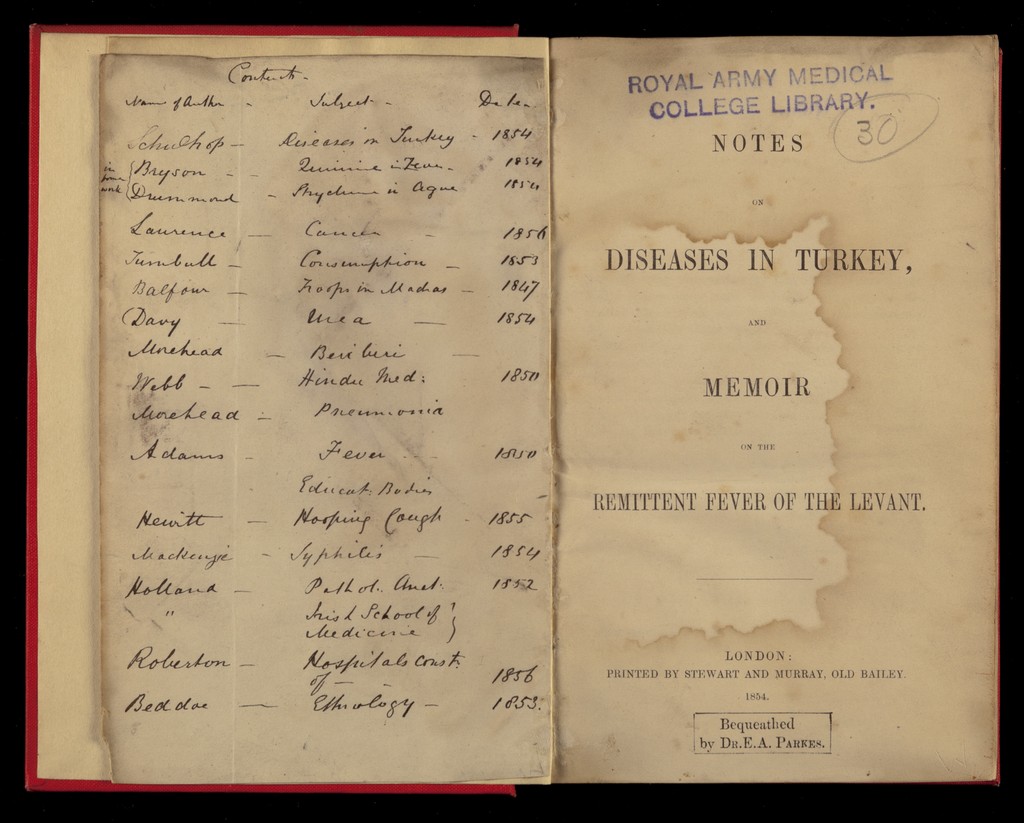 Contents -
Name of Author - Subject - Date -
Schulhof - Diseases in Turkey - 1854
in same work { Bryson - - Quinine in Fever - 1854
Drummond - Strychnine in Ague 1854
Laurence - Cancer - 1856
Turnbull - Consumption - 1853
Balfour - Troops in Madras - 1847
Davy - Urea - 1854
Morehead - Beriberi -
Webb - - Hindu Med: 1850
Morehead - Pneumonia
Adams - Fever - - - 1850
Educat. Bodies
Hewitt - Hooping Cough - 1855
Mackenzie - Syphilis - 1854
Holland - Pathol. Anat. 1852
" Irish School of }
Medicine
Roberton - Hospitals const.
of - 1856
Beddoe - Ethnology - 1853.
ROYAL ARMY MEDICAL
COLLEGE LIBRARY.
30
NOTES
ON
DISEASES IN TURKEY,
AND
MEMOIR
ON THE
REMITTENT FEVER OF THE LEVANT.
LONDON:
PRINTED BY STEWART AND MURRAY, OLD BAILEY.
1854.
Bequeathed
by DR. E. A. PARKES.